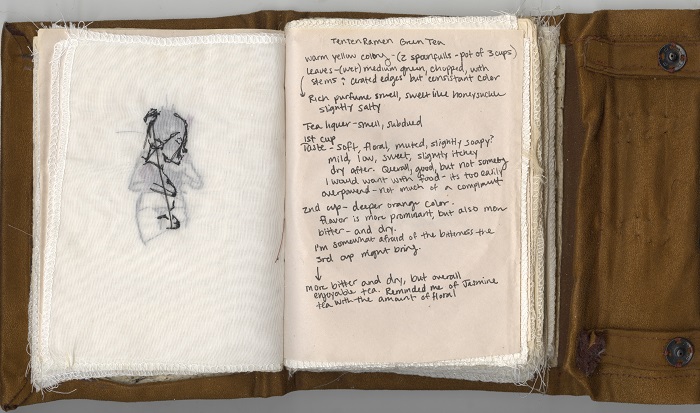 TenTen Ramen Green Tea
warm yellow coloring - (2 spoonfulls - pot of 3 cups)
leaves - (wet) medium green, chopped, with
stems ; cerated edges but consistant color
Rich purfume smell, sweet like honeysuckle
slightly salty
Tea liquer - smell, subdued
1st cup
Taste - soft, floral, muted, slightly soapy?
mild, low, sweet, slightly itchey
dry after. Overall, good, but not something
I would want with food - its too easily
overpowerd - not much of a compliment
2nd cup - deeper orange color.
flavor is more prominant, but also more
bitter - and dry.
I'm somewhat afraid of the bitterness the
3rd cup might bring.
more bitter and dry, but overall
enjoyable tea. Reminded me of Jasmine
tea with the amount of floral